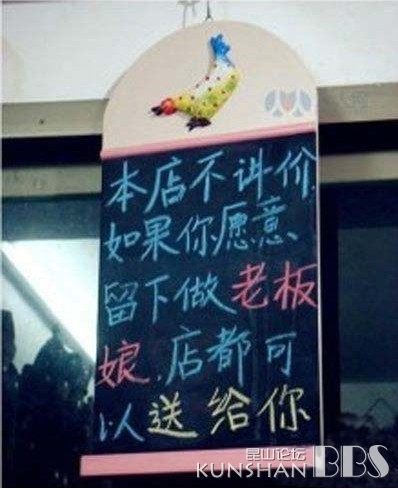 本店不讲价
如果你愿意
留下做老板
娘.店都可
以送给你
昆山论坛
KUNSHAN BBS